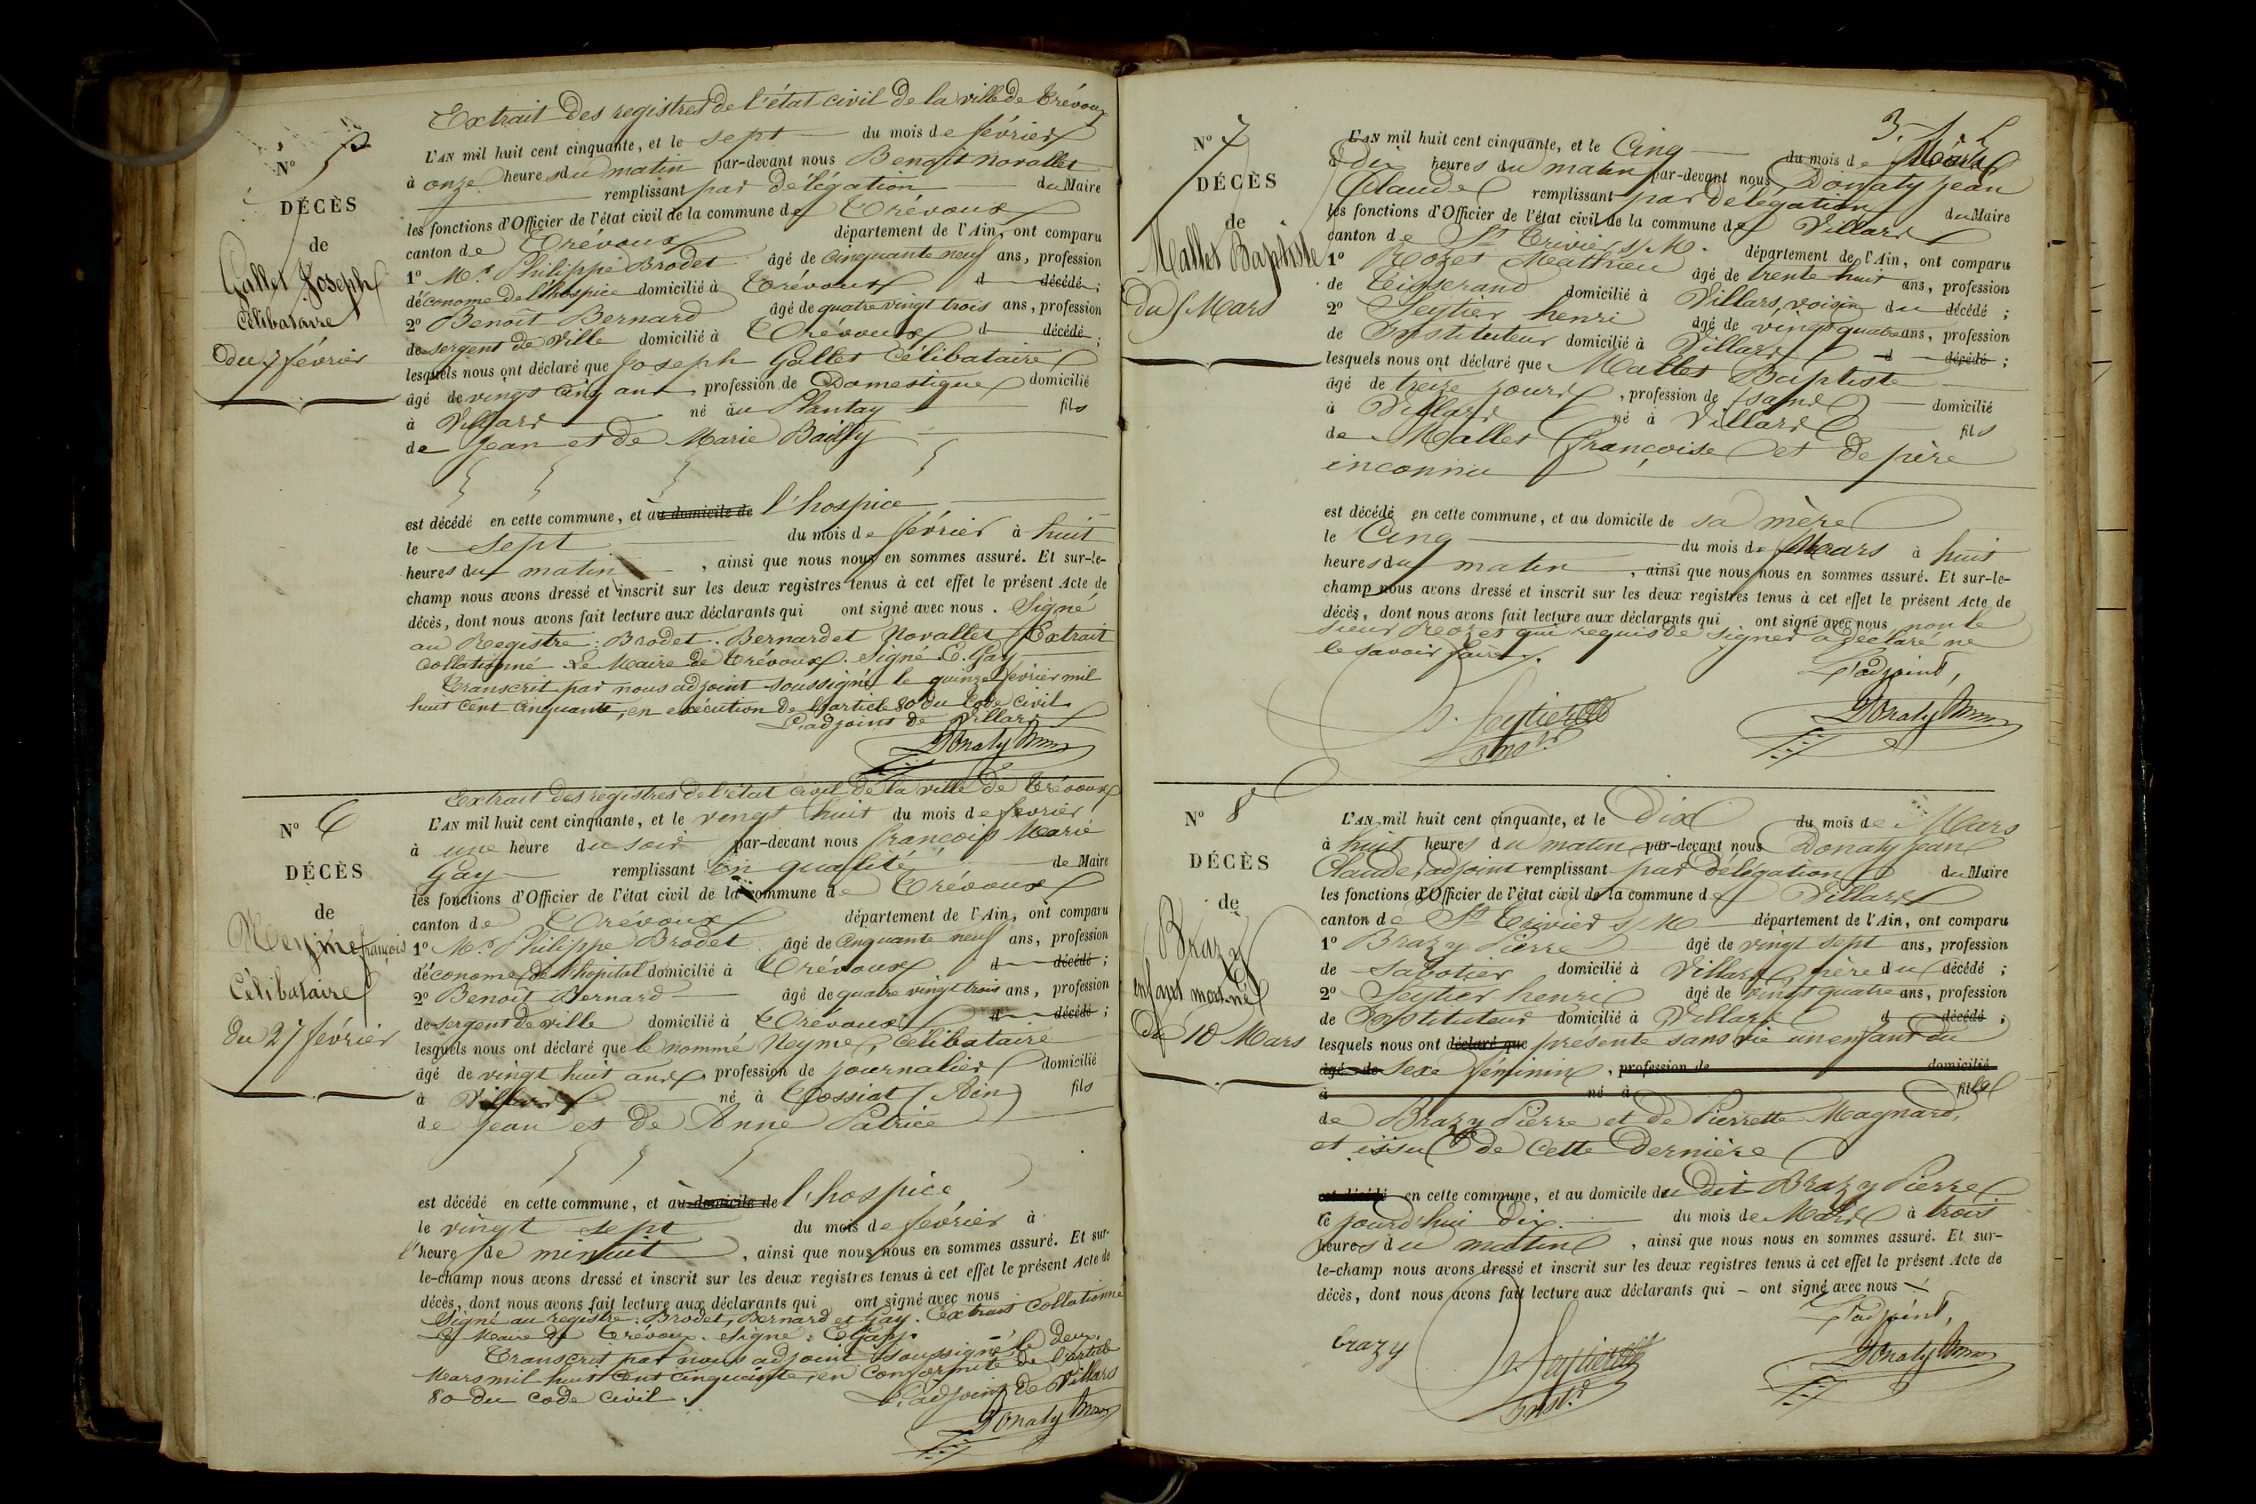 Extrait des registres de l'état civil de la ville de Trévoux
N° 5
DÉCÈS
de
Gallet Joseph
Célibataire
du 7 février
L'AN mil huit cent cinquante, et le sept du mois de février
à onze heures du matin par-devant nous Benoît Novallet
remplissant par délégation du Maire
les fonctions d'Officier de l'état civil de la commune de Trévoux
canton de Trévoux département de l'Ain, ont comparu
1° Mr. Philippe Brodet âgé de cinquante neuf ans, profession
d'économe de l'hospice domicilié à Trévoux d décédé ;
2° Benoît Bernard âgé de quatre vingt trois ans, profession
de sergent de ville domicilié à Trévoux d décédé ;
lesquels nous ont déclaré que Joseph Gallet célibataire
âgé de vingt cinq ans profession de Domestique domicilié
à Villard né au Plantay fils
de Jean et de Marie Bailly
est décédé en cette commune, et au domicile de l'hospice
le sept du mois de février à huit
heures du matin, ainsi que nous nous en sommes assuré. Et sur-le-
champ nous avons dressé et inscrit sur les deux registres tenus à cet effet le présent Acte de
décès, dont nous avons fait lecture aux déclarants qui ont signé avec nous. Signé
au Registre : Brodet. Bernard et Novallet. Extrait
Collationné Le Maire de Trévoux. Signé E. Gay
Transcrit par nous adjoint soussigné le quinze février mil
huit cent cinquante, en exécution de l'article 80 du Code civil.
L'adjoint de Villars
Donaty
Extrait des registres de l'état civil de la ville de Trévoux
N° 6
DÉCÈS
de
Neyme françois
Célibataire
du 27 février
L'AN mil huit cent cinquante, et le vingt huit du mois de février
à une heure du soir par-devant nous François Marie
Gay remplissant en qualité de Maire
les fonctions d'Officier de l'état civil de la commune de Trévoux
canton de Trévoux département de l'Ain, ont comparu
1° Mr. Philippe Brodet âgé de cinquante neuf ans, profession
d'économe de l'hopital domicilié à Trévoux d décédé ;
2° Benoît Bernard âgé de quatre vingt trois ans, profession
de sergent de ville domicilié à Trévoux d décédé ;
lesquels nous ont déclaré que le nommé Neyme, célibataire
âgé de vingt huit ans, profession de journalier domicilié
à Villars né à Cossiat (Ain) fils
de Jean et de Anne Patrice
est décédé en cette commune, et au domicile de l'hospice,
le vingt sept du mois de février à
l'heure de minuit, ainsi que nous nous en sommes assuré. Et sur-
le-champ nous avons dressé et inscrit sur les deux registres tenus à cet effet le présent Acte de
décès, dont nous avons fait lecture aux déclarants qui ont signé avec nous
Signé au registre : Brodet, Bernard et Gay. Extrait Collationné
Le Maire de Trévoux. Signé : E Gay.
Transcrit par nous adjoint soussigné le deux
Mars mil huit cent cinquante, en conformité de l'article
80 du code civil.
L'adjoint de Villars
Donaty
3.
N° 7
DÉCÈS
de
Mallet Baptiste
du 5 Mars
L'AN mil huit cent cinquante, et le Cinq du mois de Mars
à dix heures du matin par-devant nous Donaty Jean
Claude remplissant par délégation du Maire
les fonctions d'Officier de l'état civil de la commune de Villars
canton de St Trivier s/M. département de l'Ain, ont comparu
1° Rozet Mathieu âgé de trente huit ans, profession
de Teisserand domicilié à Villars, voisin du décédé ;
2° Seytier henri âgé de vingt quatre ans, profession
de Instituteur domicilié à Villars d décédé ;
lesquels nous ont déclaré que Mallet Baptiste
âgé de treize jours, profession de (sans) domicilié
à Villars né à Villars fils
de Mallet Françoise et de père
inconnu
est décédé en cette commune, et au domicile de sa mère
le Cinq du mois de Mars à huit
heures du matin, ainsi que nous nous en sommes assuré. Et sur-le-
champ nous avons dressé et inscrit sur les deux registres tenus à cet effet le présent Acte de
décès, dont nous avons fait lecture aux déclarants qui ont signé avec nous non le
sieur Rozet qui requis de signer a déclaré ne
le savoir faire.
L'adjoint,
h. Seytier
Instr
Donaty
N° 8
DÉCÈS
de
Brazy
enfant mort-né
du 10 Mars
L'AN mil huit cent cinquante, et le Dix du mois de Mars
à huit heures du matin par-devant nous Donaty Jean
Claude, adjoint remplissant par délégation du Maire
les fonctions d'Officier de l'état civil de la commune de Villars
canton de St Trivier s/M département de l'Ain, ont comparu
1° Brazy Pierre âgé de vingt sept ans, profession
de Sabotier domicilié à Villars, père du décédé ;
2° Seytier henri âgé de vingt quatre ans, profession
de Instituteur domicilié à Villars d décédé ;
lesquels nous ont déclaré que présenté sans vie un enfant du
âgé de sexe féminin, profession de domicilié
à né à fille
de Brazy Pierre et de Pierrette Magnard,
et issu de cette dernière
est décédé en cette commune, et au domicile du dit Brazy Pierre
le jourd'hui dix. du mois de Mars à trois
heures du matin, ainsi que nous nous en sommes assuré. Et sur-
le-champ nous avons dressé et inscrit sur les deux registres tenus à cet effet le présent Acte de
décès, dont nous avons fait lecture aux déclarants qui – ont signé avec nous
L'adjoint,
brazy
h. Seytier
Instr
Donaty